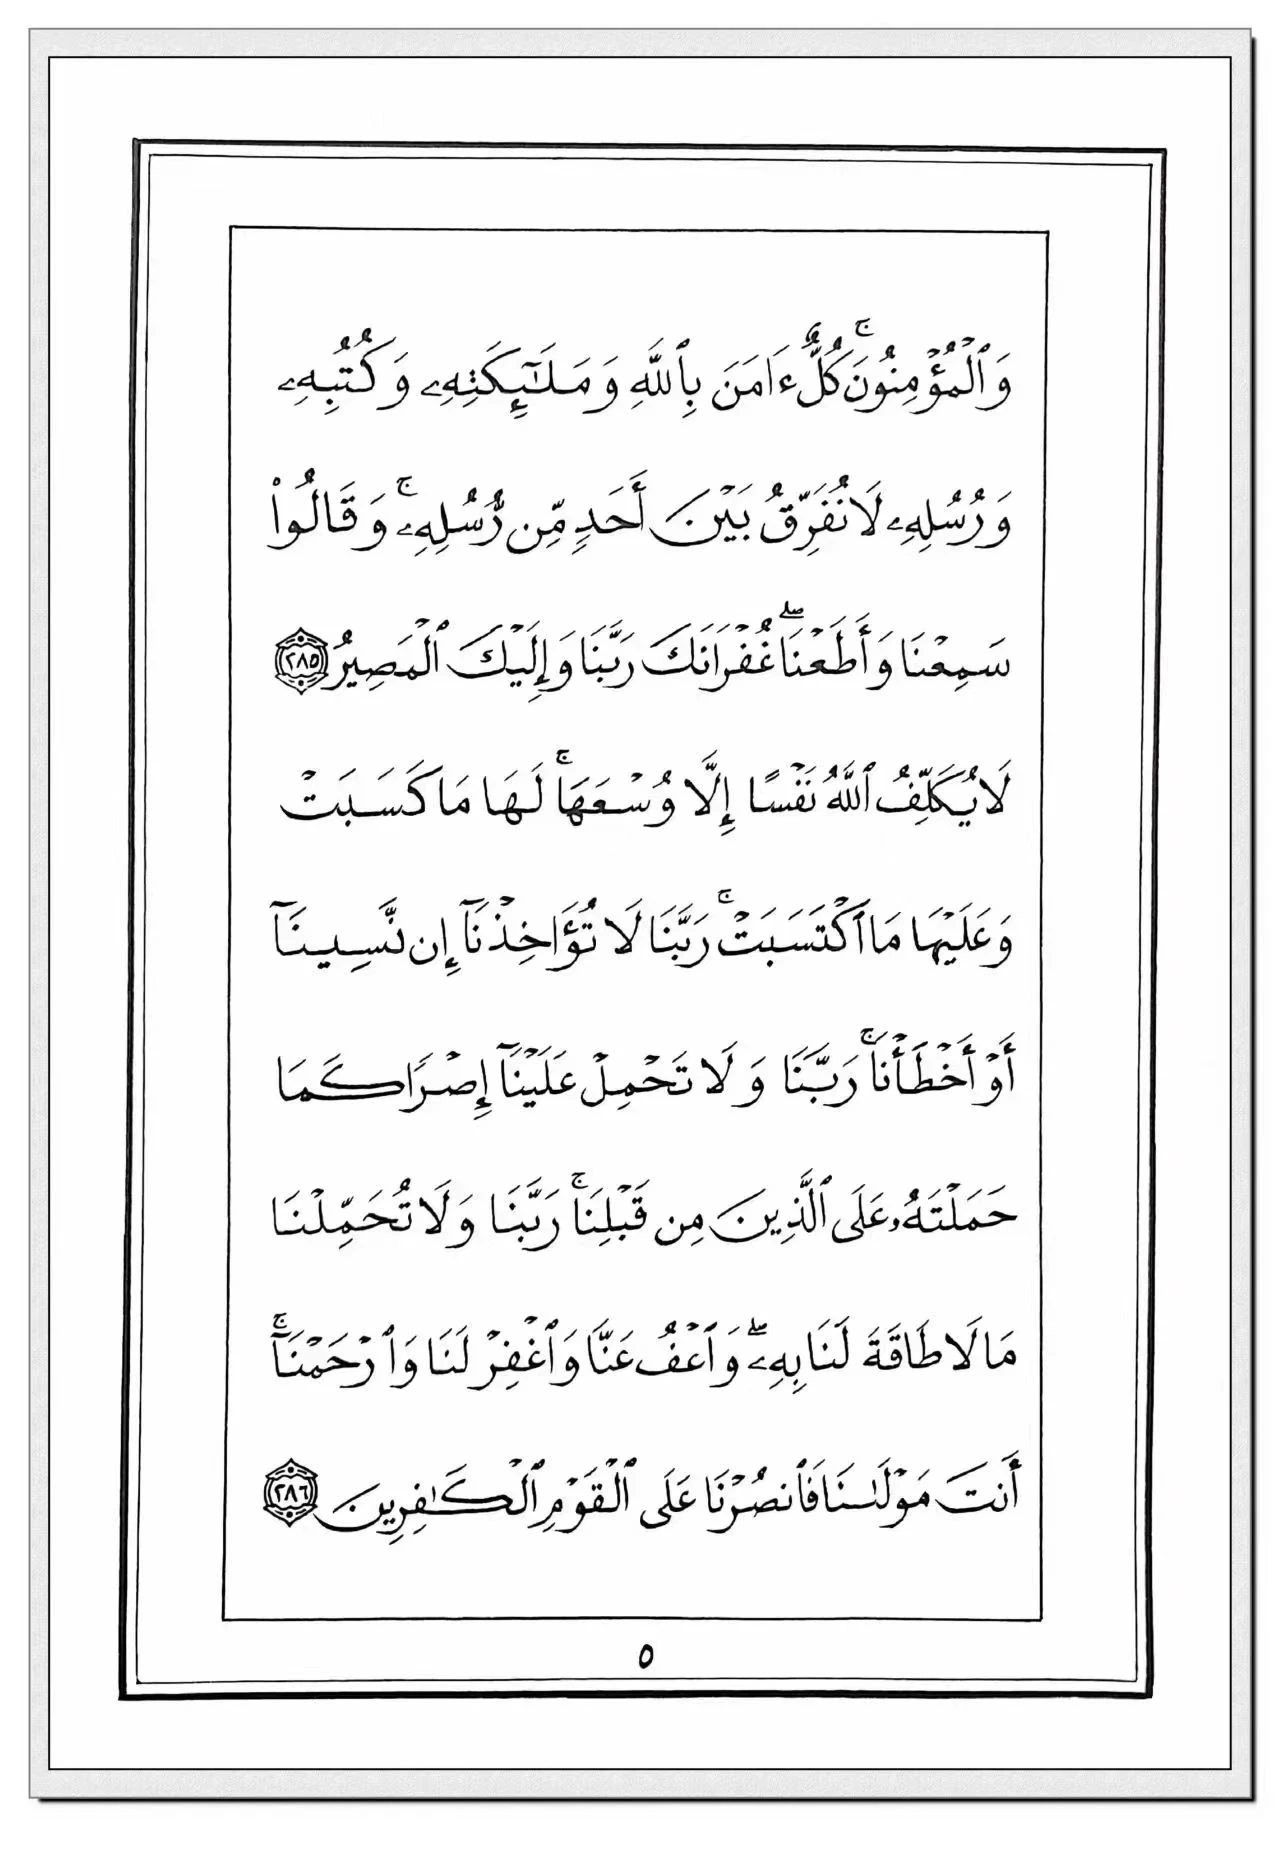 وَٱلْمُؤْمِنُونَۚ كُلٌّ ءَامَنَ بِٱللَّهِ وَمَلَٰٓئِكَتِهِۦ وَكُتُبِهِۦ
وَرُسُلِهِۦ لَا نُفَرِّقُ بَيْنَ أَحَدٍ مِّن رُّسُلِهِۦۚ وَقَالُوا۟
سَمِعْنَا وَأَطَعْنَاۖ غُفْرَانَكَ رَبَّنَا وَإِلَيْكَ ٱلْمَصِيرُ ٢٨٥
لَا يُكَلِّفُ ٱللَّهُ نَفْسًا إِلَّا وُسْعَهَاۚ لَهَا مَا كَسَبَتْ
وَعَلَيْهَا مَا ٱكْتَسَبَتْۚ رَبَّنَا لَا تُؤَاخِذْنَآ إِن نَّسِينَآ
أَوْ أَخْطَأْنَاۚ رَبَّنَا وَلَا تَحْمِلْ عَلَيْنَآ إِصْرًا كَمَا
حَمَلْتَهُۥ عَلَى ٱلَّذِينَ مِن قَبْلِنَاۚ رَبَّنَا وَلَا تُحَمِّلْنَا
مَا لَا طَاقَةَ لَنَا بِهِۦۖ وَٱعْفُ عَنَّا وَٱغْفِرْ لَنَا وَٱرْحَمْنَآۚ
أَنتَ مَوْلَىٰنَا فَٱنصُرْنَا عَلَى ٱلْقَوْمِ ٱلْكَٰفِرِينَ ٢٨٦
٥